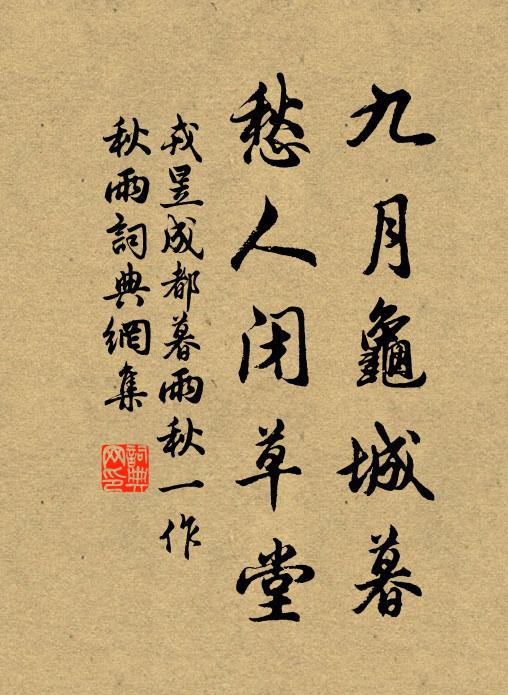 九月龜城暮
愁人闭草堂
戎昱成都暮雨秋一作
秋雨詞典網集
詞典網印